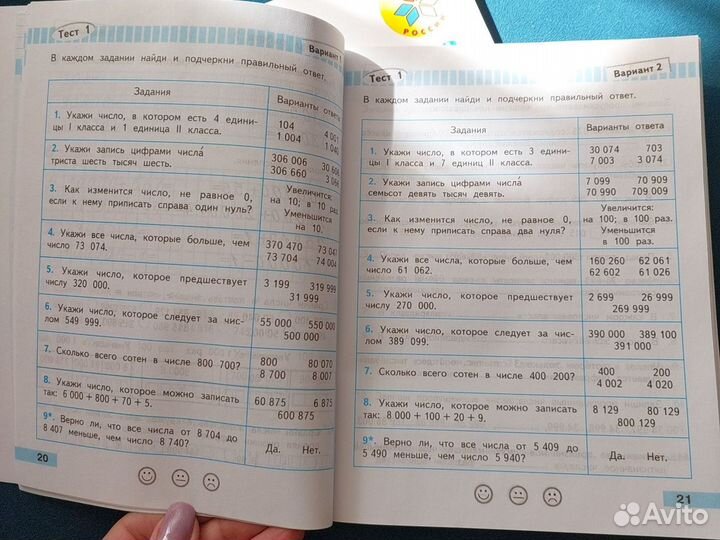 РОССИИ
Тест 1
Вариант 1
В каждом задании найди и подчеркни правильный ответ.
Задания
Варианты ответа
1. Укажи число, в котором есть 4 едини-
цы I класса и 1 единица II класса.
104 4 001
1 004 1 040
2. Укажи запись цифрами числа́
триста шесть тысяч шесть.
306 006 30 606
306 660 3 066
3. Как изменится число, не равное 0,
если к нему приписать справа один нуль?
Увеличится:
на 10; в 10 раз.
Уменьшится
на 10.
4. Укажи все числа, которые больше, чем
число 73 074.
370 470 73 047
73 704 74 004
5. Укажи число, которое предшествует
числу 320 000.
3 199 319 999
31 999
6. Укажи число, которое следует за чис-
лом 549 999.
55 000 550 000
500 000
7. Сколько всего сотен в числе 800 700?
800 80 070
8 700 8 007
8. Укажи число, которое можно записать
так: 6 000 + 800 + 70 + 5.
60 875 6 875
600 875
9*. Верно ли, что все числа от 8 704 до
8 407 меньше, чем число 8 740?
Да. Нет.
20
Тест 1
Вариант 2
В каждом задании найди и подчеркни правильный ответ.
Задания
Варианты ответа
1. Укажи число, в котором есть 3 едини-
цы I класса и 7 единиц II класса.
30 074 703
7 003 3 074
2. Укажи запись цифрами числа́
семьсот девять тысяч девять.
7 099 70 909
70 990 709 009
3. Как изменится число, не равное 0,
если к нему приписать справа два нуля?
Увеличится:
на 100; в 100 раз.
Уменьшится
в 100 раз.
4. Укажи все числа, которые больше, чем
число 61 062.
160 260 62 061
62 602 61 026
5. Укажи число, которое предшествует
числу 270 000.
2 699 26 999
269 999
6. Укажи число, которое следует за чис-
лом 389 099.
390 000 389 100
391 000
7. Сколько всего сотен в числе 400 200?
400 200
4 002 4 020
8. Укажи число, которое можно записать
так: 8 000 + 100 + 20 + 9.
8 129 80 129
800 129
9*. Верно ли, что все числа от 5 409 до
5 490 меньше, чем число 5 940?
Да. Нет.
21
Avito